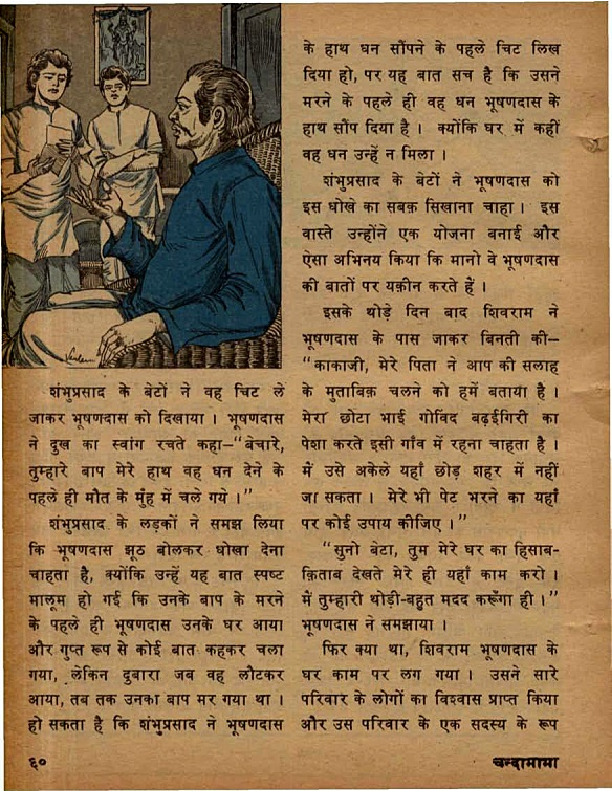 शंभुप्रसाद के बेटों ने वह चिट ले
जाकर भूषणदास को दिखाया । भूषणदास
ने दुख का स्वांग रचते कहा—“बेचारे,
तुम्हारे बाप मेरे हाथ वह धन देने के
पहले ही मौत के मुँह में चले गये ।”
शंभुप्रसाद के लड़कों ने समझ लिया
कि भूषणदास झूठ बोलकर धोखा देना
चाहता है, क्योंकि उन्हें यह बात स्पष्ट
मालूम हो गई कि उनके बाप के मरने
के पहले ही भूषणदास उनके घर आया
और गुप्त रूप से कोई बात कहकर चला
गया, लेकिन दुबारा जब वह लौटकर
आया, तब तक उनका बाप मर गया था ।
हो सकता है कि शंभुप्रसाद ने भूषणदास
के हाथ धन सौंपने के पहले चिट लिख
दिया हो, पर यह बात सच है कि उसने
मरने के पहले ही वह धन भूषणदास के
हाथ सौंप दिया है । क्योंकि घर में कहीं
वह धन उन्हें न मिला ।
शंभुप्रसाद के बेटों ने भूषणदास को
इस धोखे का सबक़ सिखाना चाहा । इस
वास्ते उन्होंने एक योजना बनाई और
ऐसा अभिनय किया कि मानो वे भूषणदास
की बातों पर यक़ीन करते हैं ।
इसके थोड़े दिन बाद शिवराम ने
भूषणदास के पास जाकर बिनती की—
“काकाजी, मेरे पिता ने आप की सलाह
के मुताबिक़ चलने को हमें बताया है ।
मेरा छोटा भाई गोविंद बढ़ईगिरी का
पेशा करते इसी गाँव में रहना चाहता है ।
में उसे अकेले यहाँ छोड़ शहर में नहीं
जा सकता । मेरे भी पेट भरने का यहाँ
पर कोई उपाय कीजिए ।”
“सुनो बेटा, तुम मेरे घर का हिसाब-
क़िताब देखते मेरे ही यहाँ काम करो ।
में तुम्हारी थोड़ी-बहुत मदद करूँगा ही ।”
भूषणदास ने समझाया ।
फिर क्या था, शिवराम भूषणदास के
घर काम पर लग गया । उसने सारे
परिवार के लोगों का विश्वास प्राप्त किया
और उस परिवार के एक सदस्य के रूप
६०
चन्दामामा